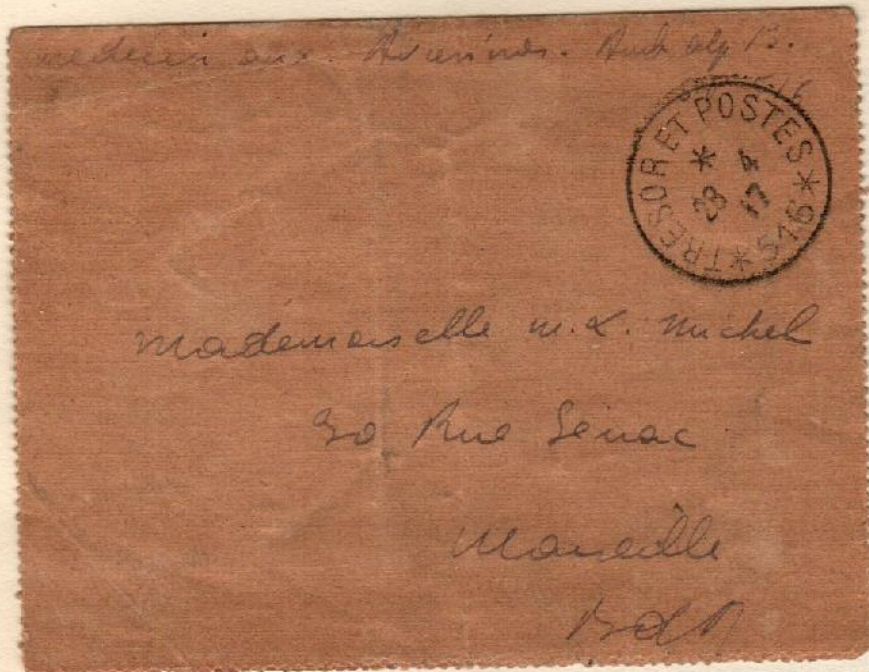 medecin aux. Avierinos. Amb alp 13.
16
TRESOR ET POSTES
* 4
28 17
*516*
Mademoiselle M.L. Michel
30 Rue Sénac
Marseille
BdR